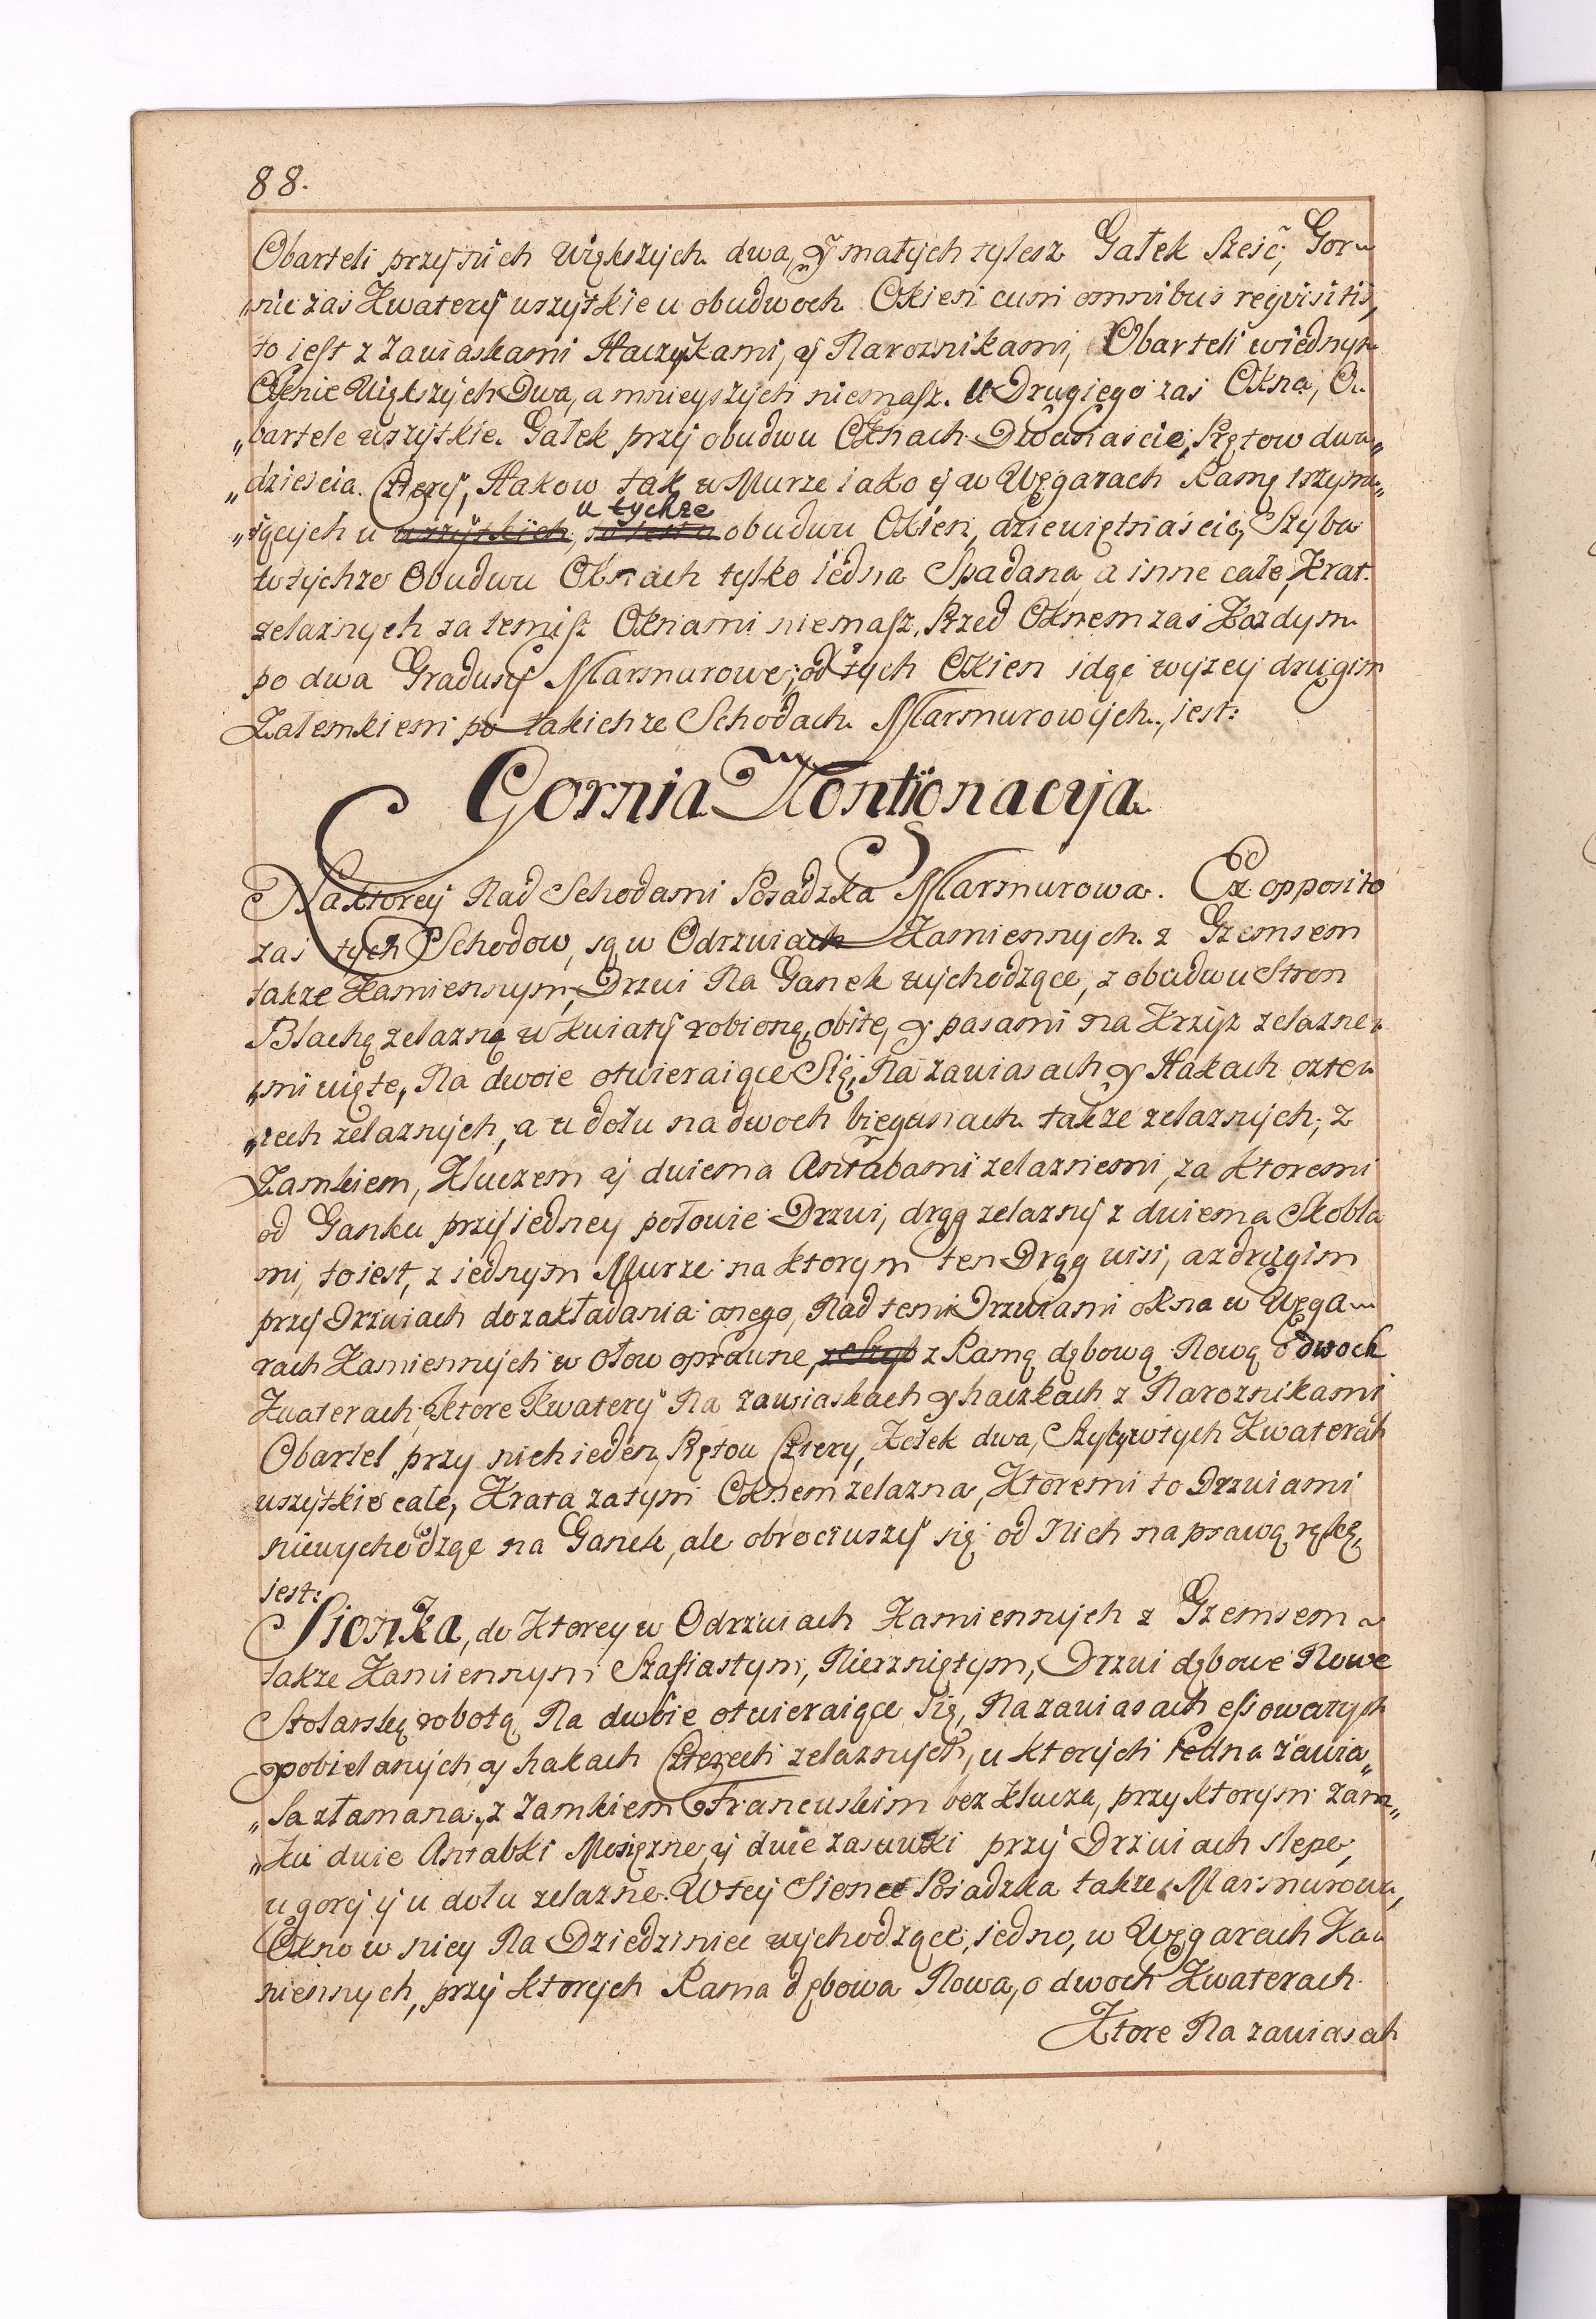 88.
Obarteli przy nich Większych dwa, y małych tylesz Gałek Sześć, Gor-
„nie zaś Kwatery wszytkie u obudwoch Okien cum omnibus reqvisitis,
to iest z Zawiaskami Haczykami, y Naroznikami, Obarteli wiednym
Oknie Większych Dwa, a mnieyszych niemasz. U Drugiego zaś Okna, O-
„bartele wszytkie. Gałek przy obudwu Oknach Dwanaście, Prętow dwa„
„dzieścia Cztery, Hakow tak w Murze iako y w Węgarach Ramę trzyma„
„iących u wszytkich, to iest u u tychże obudwu Okien, dziewiętnaście, Szyba
w tychże Obudwu Oknach tylko iedna Spadana, a inne całe, Krat.
zelaznych za temisz Oknami niemasz, Przed Oknem zaś Kazdym
po dwa Gradusy Marmurowe; od tych Okien idąc wyzey drugim
Załemkiem po takichze Schodach Marmurowych, iest:
Gornia Kontionacyja
Na ktorey Nad Schodami Posadzka Marmurowa. Ex opposito
zaś tych Schodow, są w Odrzwiach Kamiennych z Gzemsem
takze Kamiennym, Drzwi Na Ganek wychodzące, z obudwu Stron
Blachą zelazną w kwiaty robioną, obite, y pasami na Krzyz zelazne-
„mi uięte, Na dwoie otwieraiące Się, Na zawiasach y Hakach czte-
„rech zelaznych, a u dołu na dwoch biegunach takze zelaznych; z
Zamkiem, Kluczem y dwiema Antabami zelaznemi, za ktoremi
od Ganku przy iedney połowie Drzwi, drąg zelazny z dwiema Skobla
mi, to iest, z iednym Murze na ktorym ten Drąg wisi, a z drugim
przy Drzwiach do zakładania onego, Nad temi Drzwiami okna w Węga-
rach Kamiennych w ołow oprawne, z Ramą dębową Nową o dwoch
Kwaterach, Ktore Kwatery Na zawiaskach y haczkach z Naroznikami
Obartel przy nich ieden, Prętow Cztery, Kołek dwa, Szyby w tych Kwaterach
wszytkie całe, Krata za tym Oknem zelazna, Ktoremi to Drzwiami
niewychodząc na Ganek, ale obrociwszy się od Nich na prawą rękę,
iest:
Sionka, do Ktorey w Odrzwiach Kamiennych z Gzemsem
takze Kamiennym Szafiastym, Nierzniętym, Drzwi dębowe Nowe
Stolarską robotą Na dwoie otwieraiące Się, Na zawiasach essowatych
pobielanych y hakach Czterech zelaznych, u ktorych iedna zawia„
„sa złamana, z zamkiem Francuskim bez klucza, przy ktorym zam„
„ku dwie Antabki Mosięzne, y dwie zasuwki przy Drzwiach slepe,
u gory y u dołu zelazne. W tey Sionce Posadzka takze Marmurowa,
Okno w niey Na Dziedziniec wychodzące, iedno, w Węgarach Ka-
miennych, przy ktorych Rama dębowa Nowa, o dwoch Kwaterach
Ktore Na zawiasach